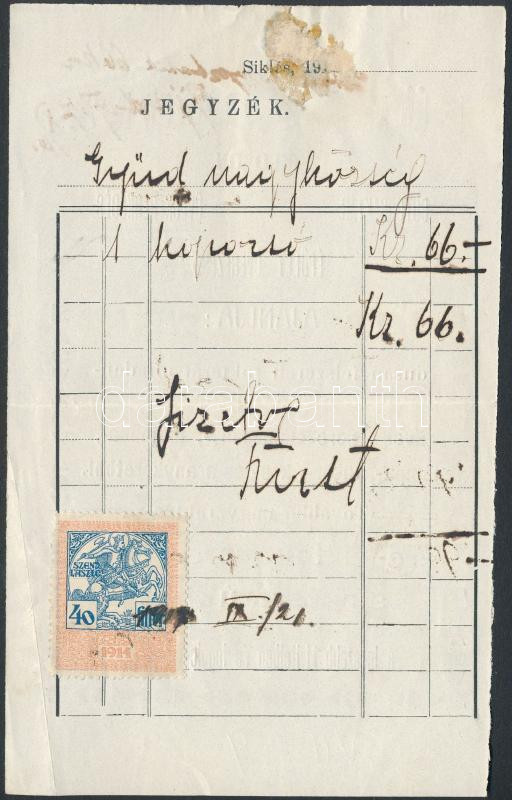 Siklós, 19
JEGYZÉK.
Gyüd nagyközség
1 koporsó Kr. 66.–
Kr. 66.
fizetve
darabanth
SZENT LÁSZLÓ
40
1914
IX./21.